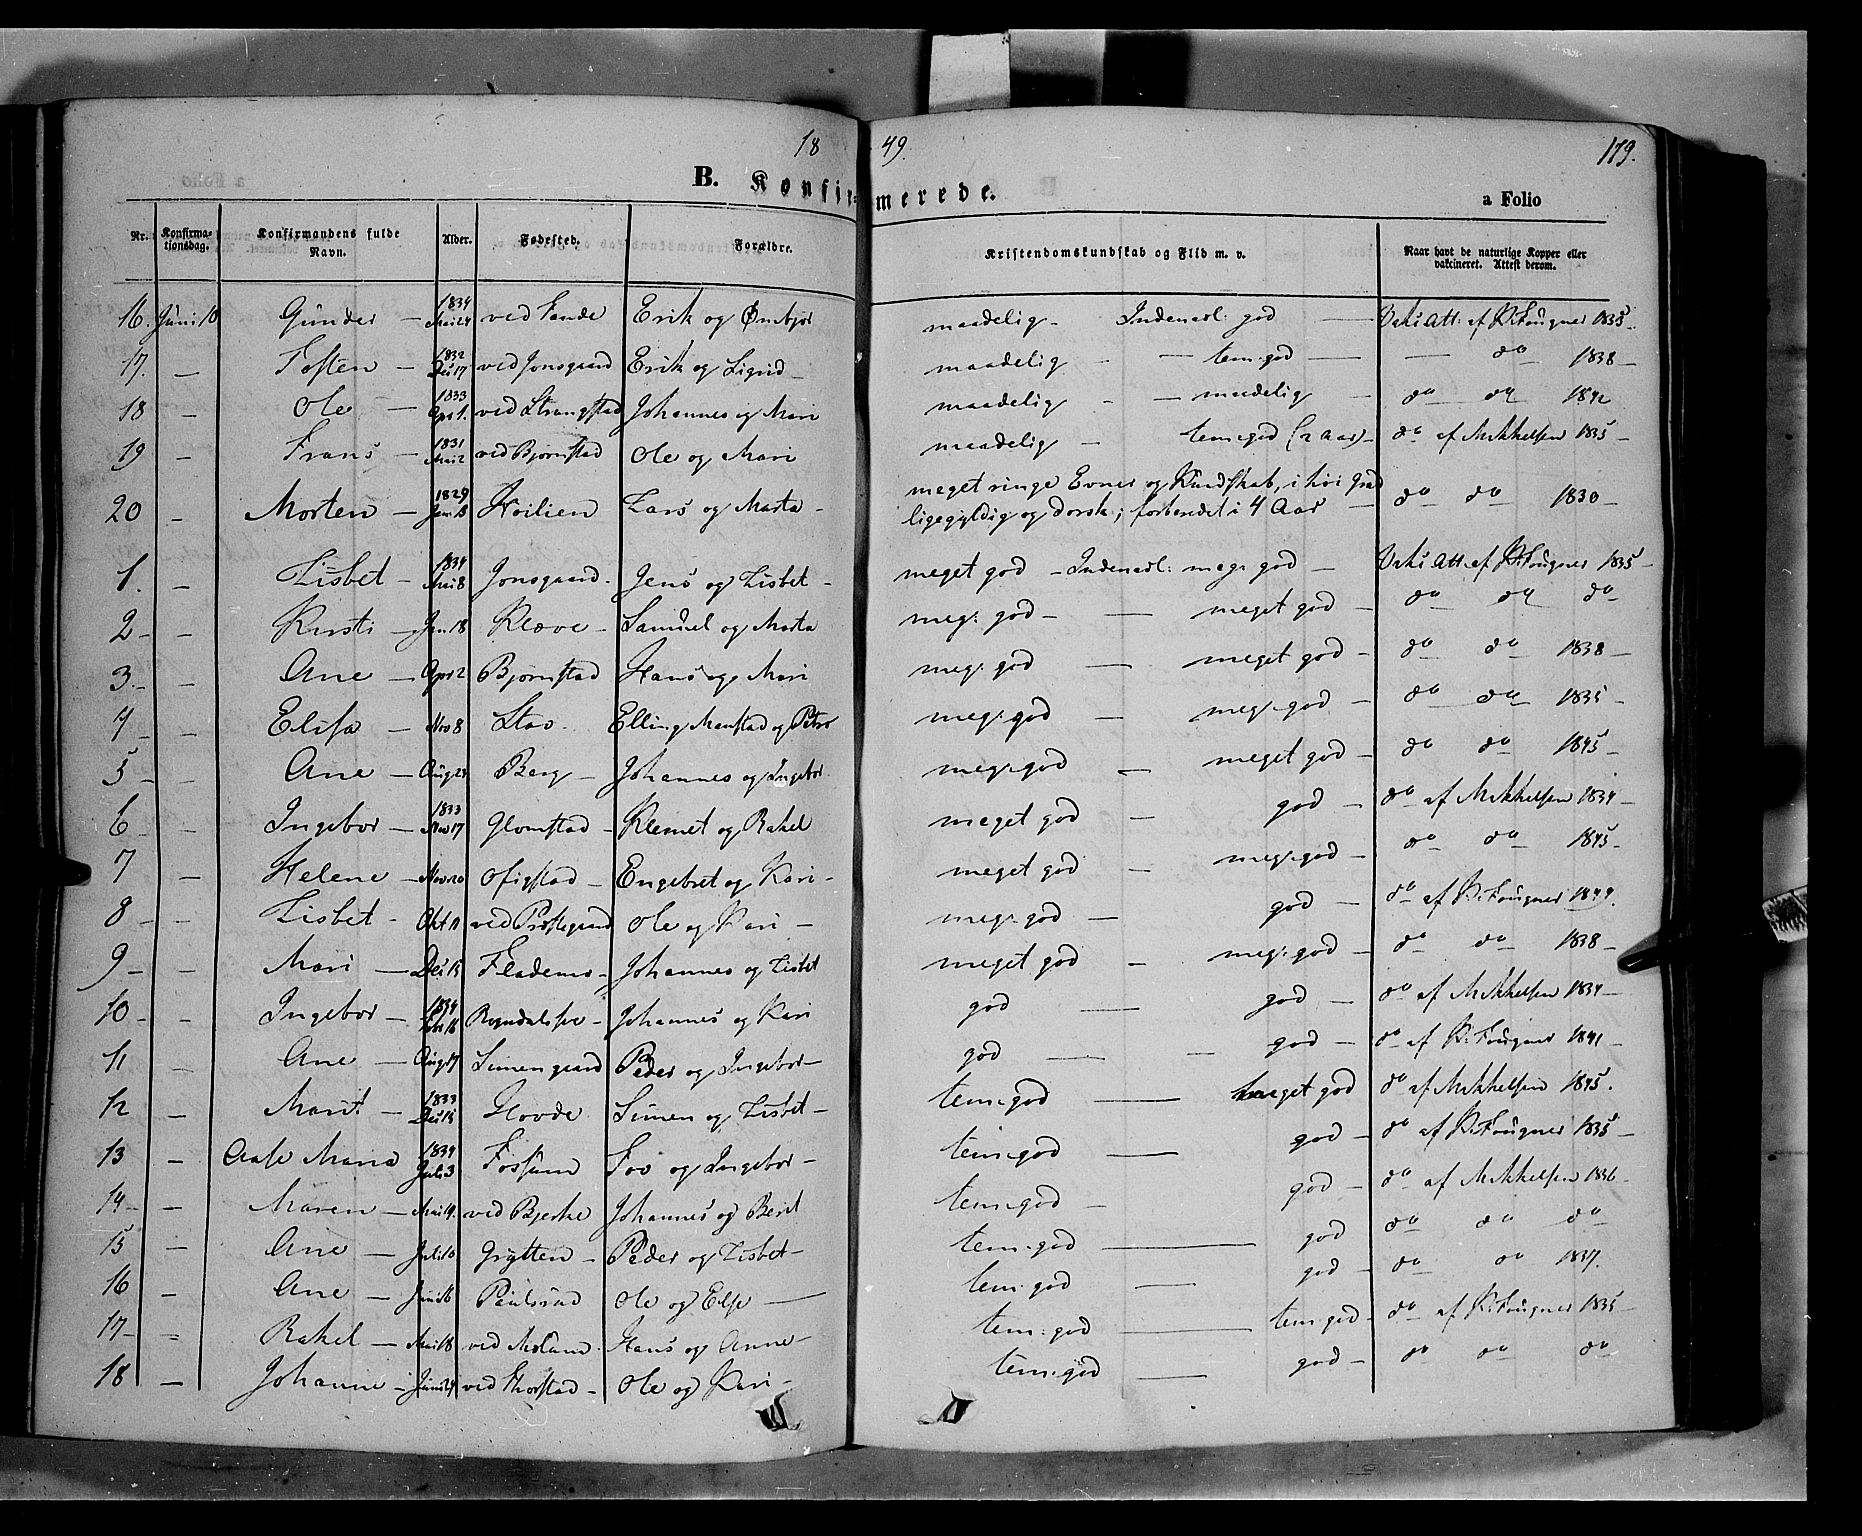 18 49. 179.
B. Konfirmerede. a Folio
Nr. Konfirmationsdag. Konfirmandens fulde Navn. Alder. Fødested. Forældre. Kristendomskundskab og Flid m. v. Naar havt de naturlige Kopper eller vakcineret. Attest derom.
16. Juni 10 Gunder — 1834 Mai 24 ved Sande Erik og maadelig - Indenadl: god — Vaks: Att: af R. Fougner 1835.
17. — Tosten — 1832 Des 17 ved Jonsgaard Erik og Sigrid — maadelig - — tem: god — — do 1838 —
18 — Ole — 1833 Apr 1. ved Strangstad Johannes og Mari maadelig - - maadelig — do do 1842
19 — Frans — 1831 Mai 2 ved Bjørnstad Ole og Mari maadelig - tem: god (2 Aar) — do af Mikkelsen 1835 —
20 — Morten — 1829 Jan 18 Høilien Lars og Marta - meget ringe Evner og Kundskab, i høi Grad
ligegyldig og dorsk; forberedet i 4 Aar — do do 1830 —
1. — Lisbet — 1834 Mai 8 Jonsgaard. Jens og Lisbet - meget god - Indenadl: meg: god — Vaks: Att: af R. Fougner 1835 —
2 — — Kirsti — Jan 18 Kleve — Samuel og Marta meg: god — — meget god — do do do
3. — — Ane — Apr 2 Bjørnstad Hans og Mari meg: god — meget god — do do 1838 —
4 — — Elisa — Nov 8 Stav. Elling Manstad og Petro meg: god — meg: god — do do 1835 —
5 — — Ane — Aug 24 Berg — Johannes og Ingebor meg: god — meget god — do do 1845 —
6 — — Ingebor — 1833 Nov 17 Glomstad — Klemet og Rakel meget god — god — do af Mikkelsen 1834 —
7 — Helene — Nov 20 Ofigstad — Engebret og Kari — meget god — meg: god — do do 1845 —
8 — — Lisbet — Okt 11 ved Prestegaard Ole og Kari — meg: god — god — do af R. Fougner 1844.
9 — — Mari — Des 15 Flademo — Johannes og Lisbet meget god — meg: god — do do 1838 —
10 — — Ingebor — 1834 Johannes og Kari god — god — do af Mikkelsen 1834 —
11 — Ane — Aug 17 Simengaard Peder og Ingebor — god — — god — do af R. Fougner 1841 —
12 — Marit — 1833 Des 15 Hovde Simen og Lisbet — tem: god — meget god do af Mikkelsen 1845.
13 — Aase Maria 1834 Juli 3 Fossum Iver og Ingebor — tem: god — god — do af R. Fougner 1835 —
14 — — Maren — Mai 14. ved Bjerke Johannes og Berit tem: god — god — do af Mikkelsen 1836 —
15 — Ane — Juli 10 Grytten — Peder og Lisbet — tem: god — god do do do
16 — Ane — Juni 6 Paulsrud Ole og Else — tem: god — god — do do 1837.
17 — — Rakel — Mai 18 ved Hans og Anne — tem: god — tem: god — do af R. Fougner 1835 —
18 — Johanne — Juni 24 ved Thorstad — Ole og Kari — tem: god — god — do do do